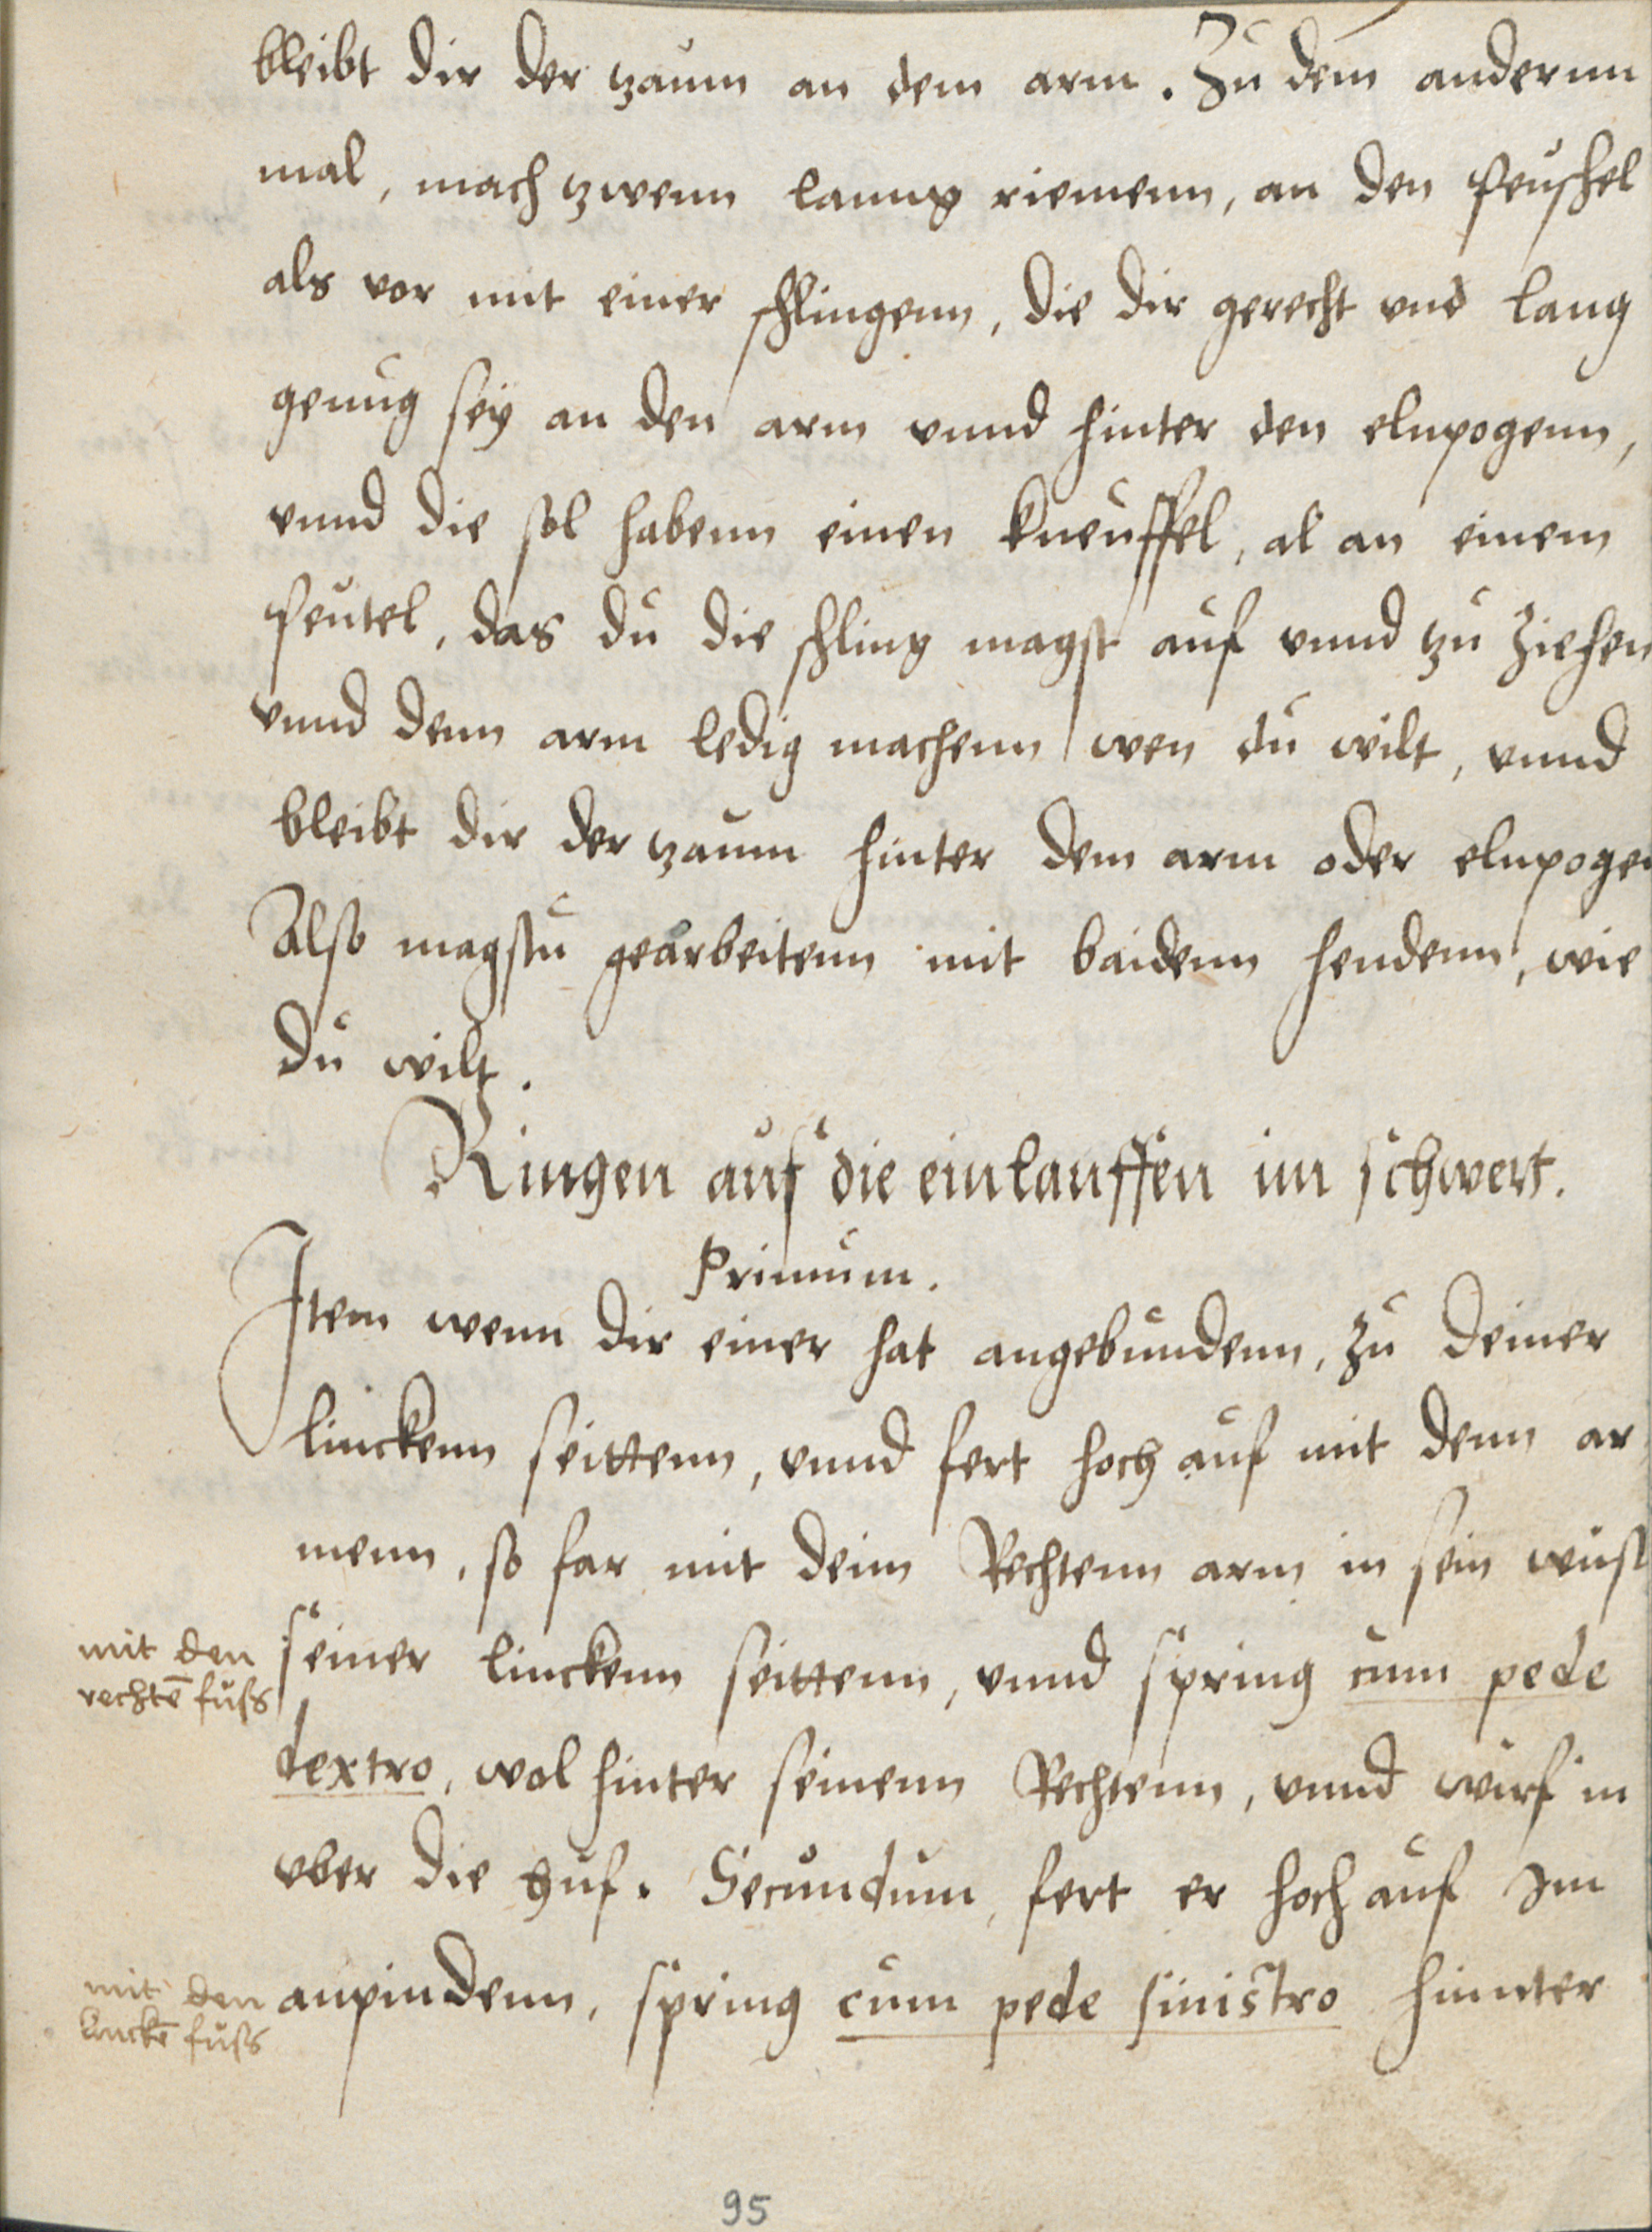 bleibt dir der zaum an dem arm. Zu dem andernn
mal, mach zwenn lanng riemenn, an den peuschel
als vor mit einer schlingenn, die dir gerecht vnd lang
genug sey an den arm vnnd hinter den elnpogenn,
vnnd die sol habenn einen kneuffel, al an einem
peutel, das du die schling magst auf vnnd zu ziehen
vnnd denn arm ledig machenn wen du wilt, vnnd
bleibt dir der zaum hinter dem arm oder elnpogen
Also magstu gearbeitenn mit baidenn hendenn, wie
du wilt.
Ringen auf die einlauffen im schwert.
Primum.
Item wenn dir einer hat angebundenn, zu deiner
linckenn seittenn, vnnd fert hoch auf mit denn ar
menn, so far mit deim Rechtenn arm in sein
mit den
rechtē fuss
seiner linckenn seittenn, vnnd spring cum pede
dextro, wol hinter seinenn Rechtenn, vnnd wirf in
vber die huf. Secundum, fert er hoch auf Im
mit den
linckē fuss
anpindenn, spring cum pede sinistro hinnter
95